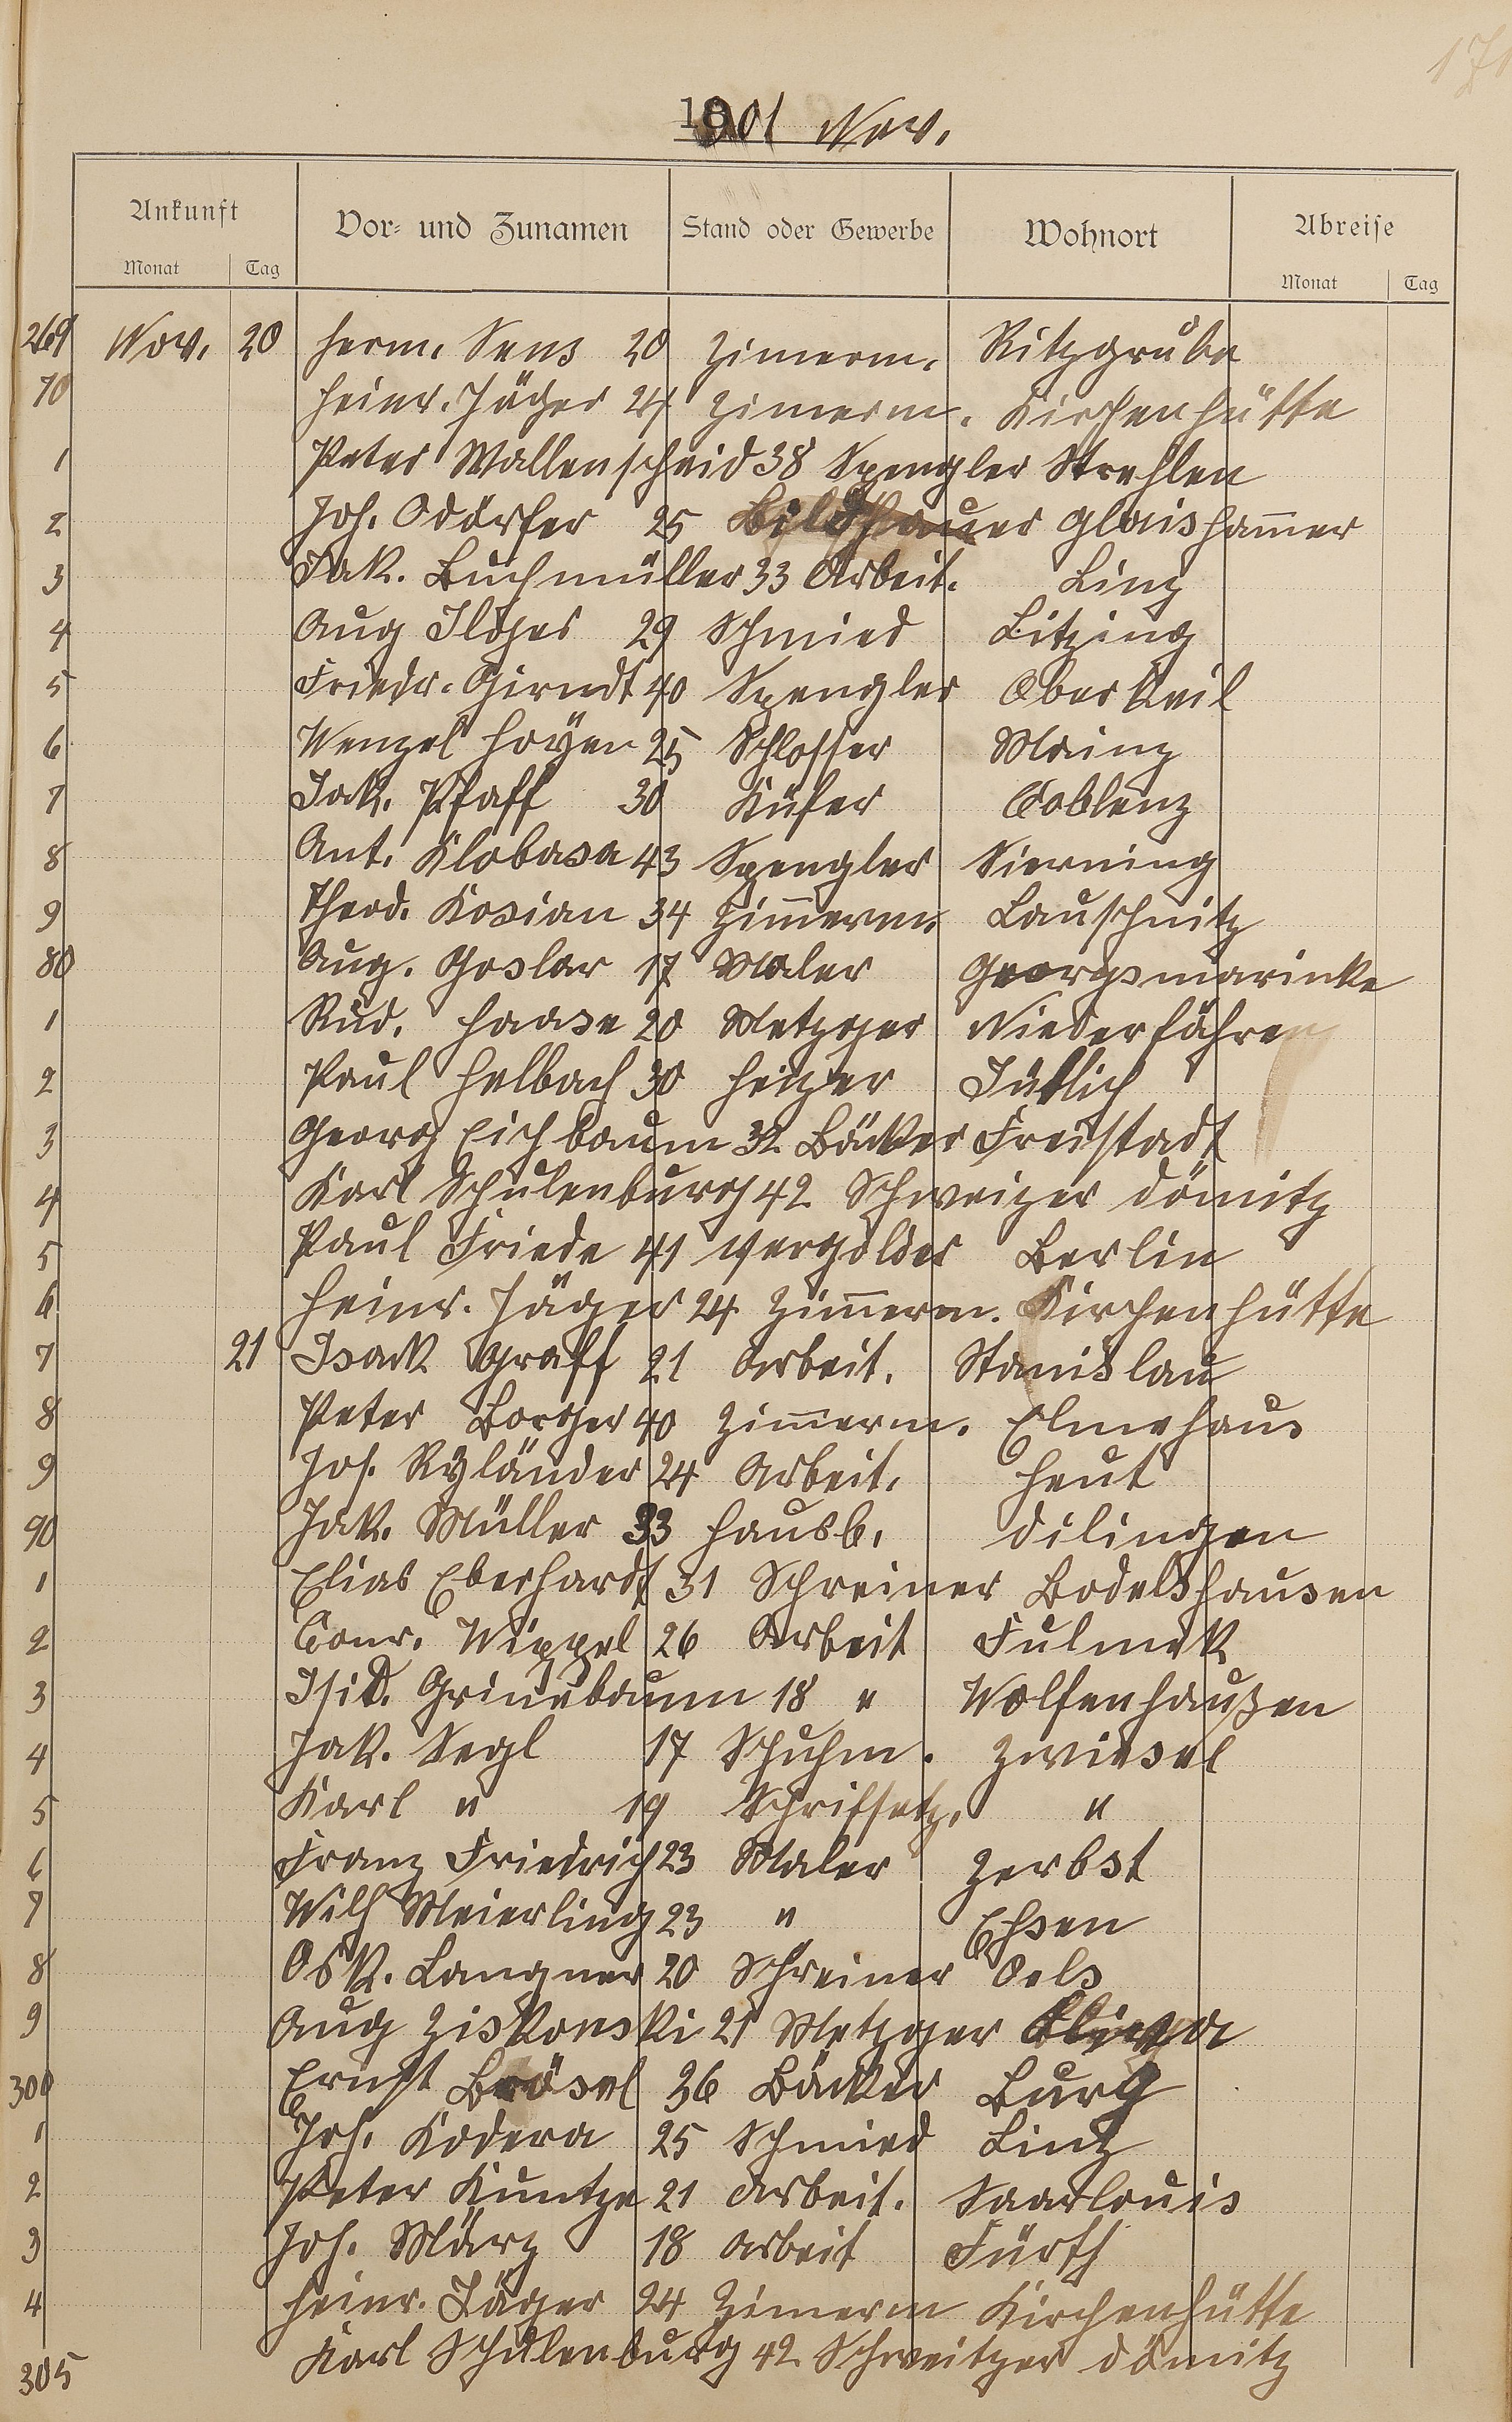 171
1901 Nov.
Ankunft Vor- und Zunamen Stand oder Gewerbe Wohnort Abreise
Monat Tag Monat Tag
269 Nov. 20 Herm. Sens 20 Zimerm. Ritzgrube
70 Heinr. Jäger 24 Zimerm. Kirchenhütte
1 Peter Wallenscheid 38 Spengler Strehlen
2 Joh. Odörfer 25 Bildhauer Glaisham̅er
3 Jak. Buchmüller 33 Arbeit. Linz
4 Aug Ilgges 29 Schmied Litzing
5 Friedr. Girndt 40 Spengler Oberkeil
6 Wenzel Hoyer 25 Schlosser Mainz
7 Jak. Pfaff 30 Küfer Coblenz
8 Ant. Klobasa 43 Spengler Sierning
9 Theod. Kosian 34 Zim̅erm. Lauschnitz
80 Aug. Goslar 17 Maler Georgsmarinke
1 Rud. Haase 20 Metzger Niederfähren
2 Paul Helbach 30 Heizer Jütlich
3 Georg Eichbaum 32 Bäcker Freistadt
4 Karl Schulenburg 42 Schweizer Dömitz
5 Paul Friede 41 Vergolder Berlin
6 Heinr. Jäger 24 Zim̅erm. Kirchenhütte
7 21 Isack Graff 21 Arbeit. Stanislau
8 Peter Borger 40 Zim̅erm. Elmehaus
9 Jos. Ryländer 24 Arbeit. Heut
90 Jak. Müller 33 Hausb. Dilingen
1 Elias Eberhardt 31 Schreiner Bodelshausen
2 Conr. Wippel 26 Arbeit Fulmek
3 Isid. Grünebaum 18 " Wolfenhaußen
4 Jak. Segl 17 Schuhm. Zwiesel
5 Karl " 19 Schrifsetz. "
6 Franz Friedrich 23 Maler Zerbst
7 Wilh Meierling 23 " Essen
8 Osk. Langner 20 Schreiner Oels
9 Aug Ziskowski 21 Metzger
300 Ernst Brösel 36 Bäcker Burg
1 Joh. Kodera 25 Schmied Linz
2 Peter Kuntze 21 Arbeit. Saarlouis
3 Joh. März 18 Arbeit Fürth
4 Heinr. Jäger 24 Zimerm Kirchenhütte
305 Karl Schulenburg 42 Schweitzer Dömitz